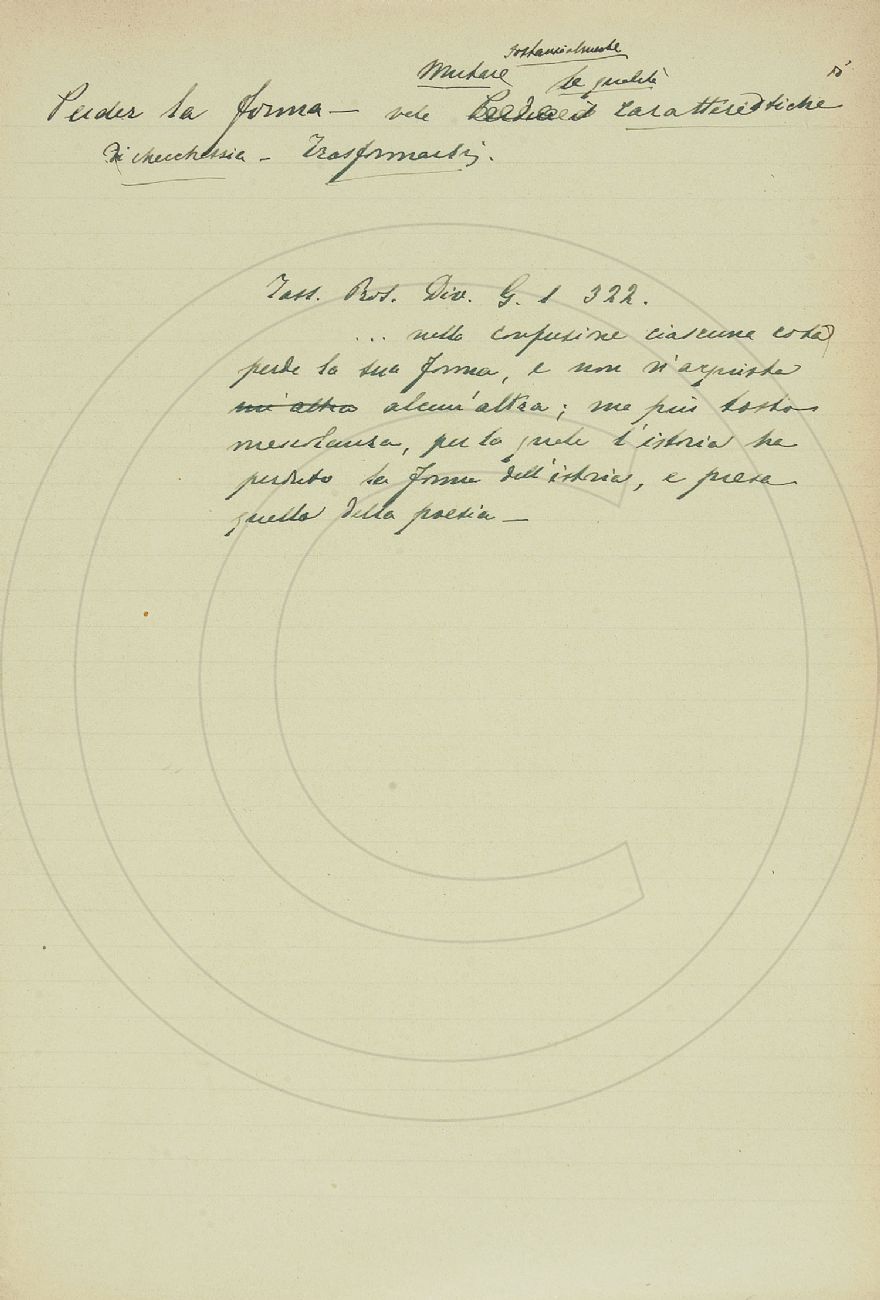 sostanzialmente
Mutare le qualità
Perder la forma — vale caratteristiche
di checchessia - Trasformarsi.
Tass. Pros. Div. G. 1 322.
... nella confusione ciascuna cosa
perde la sua forma, e non n'acquista
un'altra alcun'altra; ma più tosto
mescolanza, per la quale l'istoria ha
perduto la forma dell'istoria, e presa
quella della poesia —